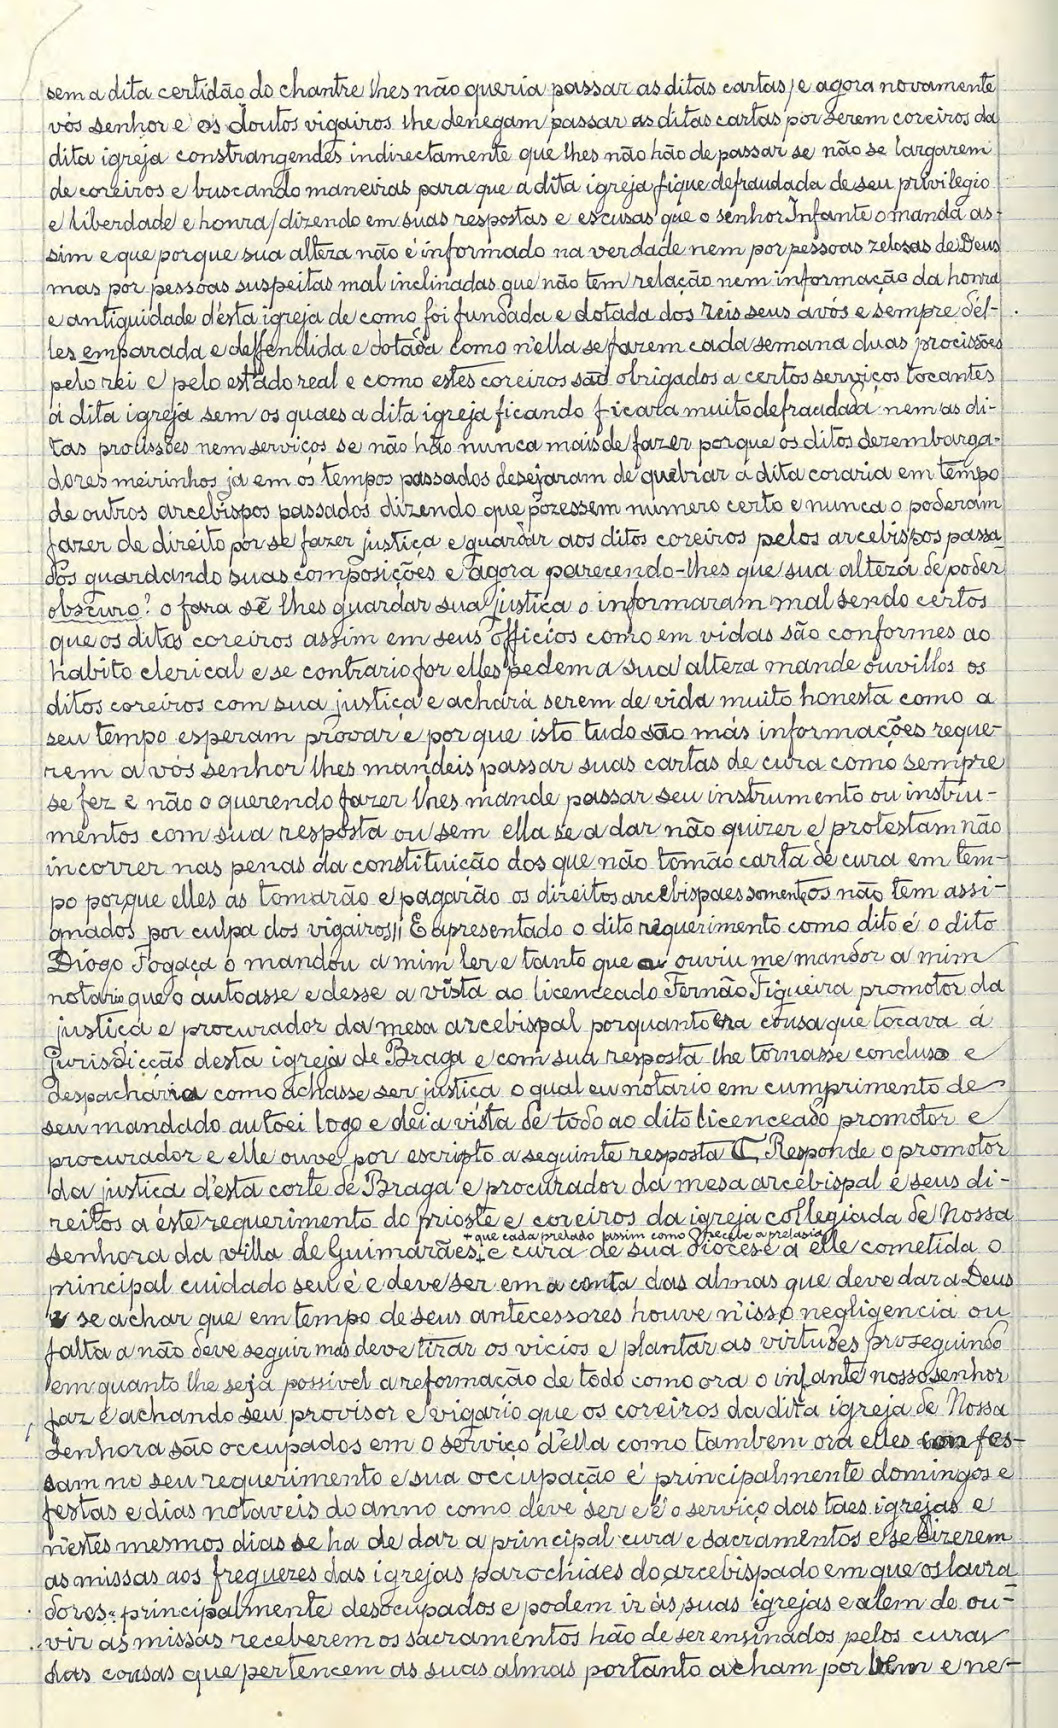 sem a dita certidão do chantre lhes não queria passar as ditas cartas / e agora novamente
vós senhor e os doutos vigairos lhe denegam passar as ditas cartas por serem coreiros da
dita igreja constrangendes indirectamente que lhes não hão de passar se não se largarem
de coreiros e buscando maneiras para que a dita igreja fique defraudada de seu privilegio
e liberdade e honra / dizendo em suas respostas e escusas que o senhor Infante o manda as-
sim e que porque sua alteza não é informado na verdade nem por pessoas zelosas de Deus
mas por pessoas suspeitas mal inclinadas que não tem relação nem informação da honra
e antiguidade d'esta igreja de como foi fundada e dotada dos reis seus avós e sempre d'el-
les emparada e deffendida e dotada como n'ella se fazem cada semana duas procissões
pelo rei e pelo estado real e como estes coreiros são obrigados a certos serviços tocantes
á dita igreja sem os quaes a dita igreja ficando ficara muito defraudada nem as di-
tas procissões nem serviços se não hão nunca mais de fazer porque os ditos dezembarga-
dores meirinhos ja em os tempos passados desejaram de quebrar a dita coraria em tempo
de outros arcebispos passados dizendo que pozessem numero certo e nunca o poderam
fazer de direito por se fazer justiça e guardar aos ditos coreiros pelos arcebispos passa-
dos guardando suas composições e agora parecendo-lhes que sua alteza de poder
obscuro? o fara sē lhes guardar sua justiça o informaram mal sendo certos
que os ditos coreiros assim em seus officios como em vidas são conformes ao
habito clerical e se contrario for elles pedem a sua alteza mande ouvillos os
ditos coreiros com sua justiça e achará serem de vida muito honesta como a
seu tempo esperam provar e por que isto tudo são más informações reque-
rem a vós senhor lhes mandeis passar suas cartas de cura como sempre
se fez e não o querendo fazer lhes mande passar seu instrumento ou instru-
mentos com sua resposta ou sem ella se a dar não quizer e protestam não
incorrer nas penas da constituição dos que não tomão carta de cura em tem-
po porque elles as tomarão e pagarão os direitos arcebispaes somente os não tem assi-
gnados por culpa dos vigairos // E apresentado o dito requerimento como dito é o dito
Diogo Fogaça o mandou a mim ler e tanto que o ouviu me mandor a mim
notario que o autoasse e desse a vista ao licenceado Fernão Figueira promotor da
justiça e procurador da mesa arcebispal porquanto era cousa que tocava á
Jurisdicção desta igreja de Braga e com sua resposta lhe tornasse concluso e
despacharia como achasse ser justiça o qual eu notario em cumprimento de
seu mandado autoei logo e dei a vista de todo ao dito licenceado promotor e
procurador e elle ouve por escripto a seguinte resposta ₵ Responde o promotor
da justiça d'esta corte de Braga e procurador da mesa arcebispal e seus di-
reitos a este requerimento do prioste e coreiros da igreja collegiada de Nossa
+ que cada prelado assim como recebe a prelasia
senhora da villa de Guimarães + e cura de sua diocese a elle cometida o
principal cuidado seu é e deve ser em a conta das almas que deve dar a Deus
e se achar que em tempo de seus antecessores houve n'isso negligencia ou
falta a não deve seguir mas deve tirar os vicios e plantar as virtudes proseguindo
em quanto lhe seja possivel a reformação de todo como ora o infante nosso senhor
faz e achando seu provisor e vigario que os coreiros da dita igreja de Nossa
Senhora são occupados em o serviço d'ella como tambem ora elles confes-
sam no seu requerimento e sua occupação é principalmente domingos e
festas e dias notaveis do anno como deve ser e é o serviço das taes igrejas e
n'estes mesmos dias se ha de dar a principal cura e sacramentos e se dizerem
as missas aos freguezes das igrejas parochiaes do arcebispado em que os lavra-
dores principalmente desocupados e podem ir ás suas igrejas e alem de ou-
vir as missas receberem os sacramentos hão de ser ensinados pelos curas
das cousas que pertencem as suas almas portanto acham por bem e ne-